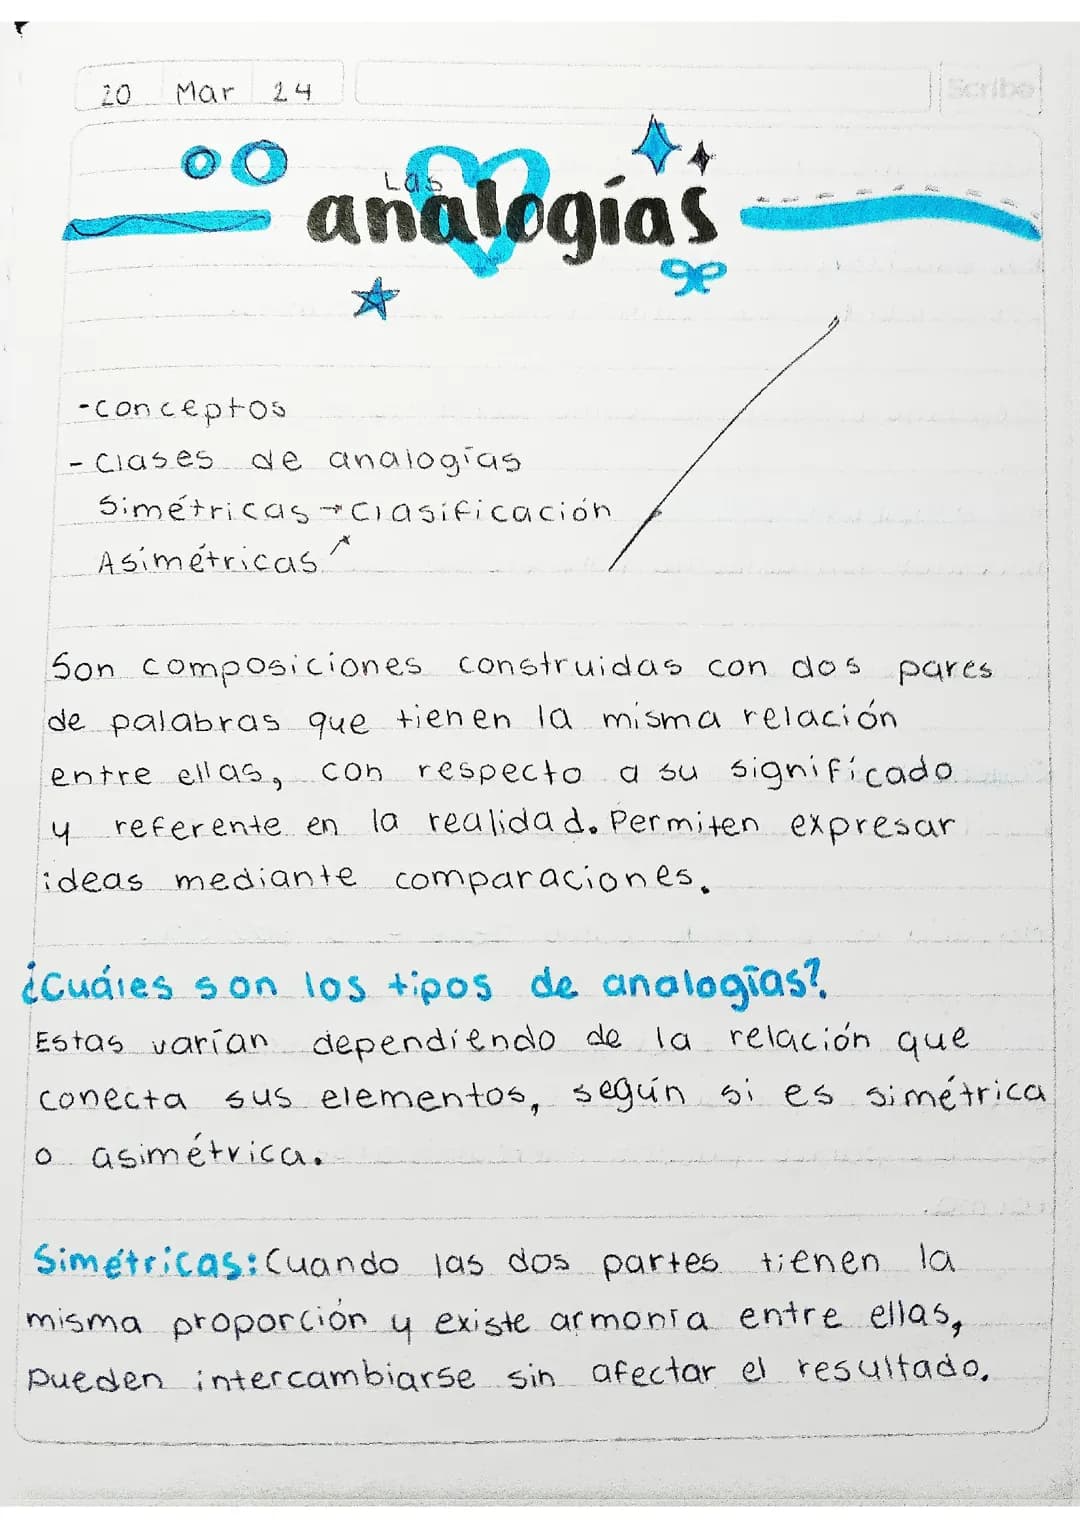 20 Mar 24
Scribe
Las
analogías
-conceptos
- Clases de analogías
Simétricas → Clasificación
Asimétricas ↗
Son composiciones construidas con dos pares
de palabras que tienen la misma relación
entre ellas, con respecto a su significado
y referente en la realidad. Permiten expresar
ideas mediante comparaciones.
¿Cuáles son los tipos de analogías?
Estas varían dependiendo de la relación que
conecta sus elementos, según si es simétrica
o asimétrica.
Simétricas: Cuando las dos partes tienen la
misma proporción y existe armonía entre ellas,
pueden intercambiarse sin afectar el resultado.